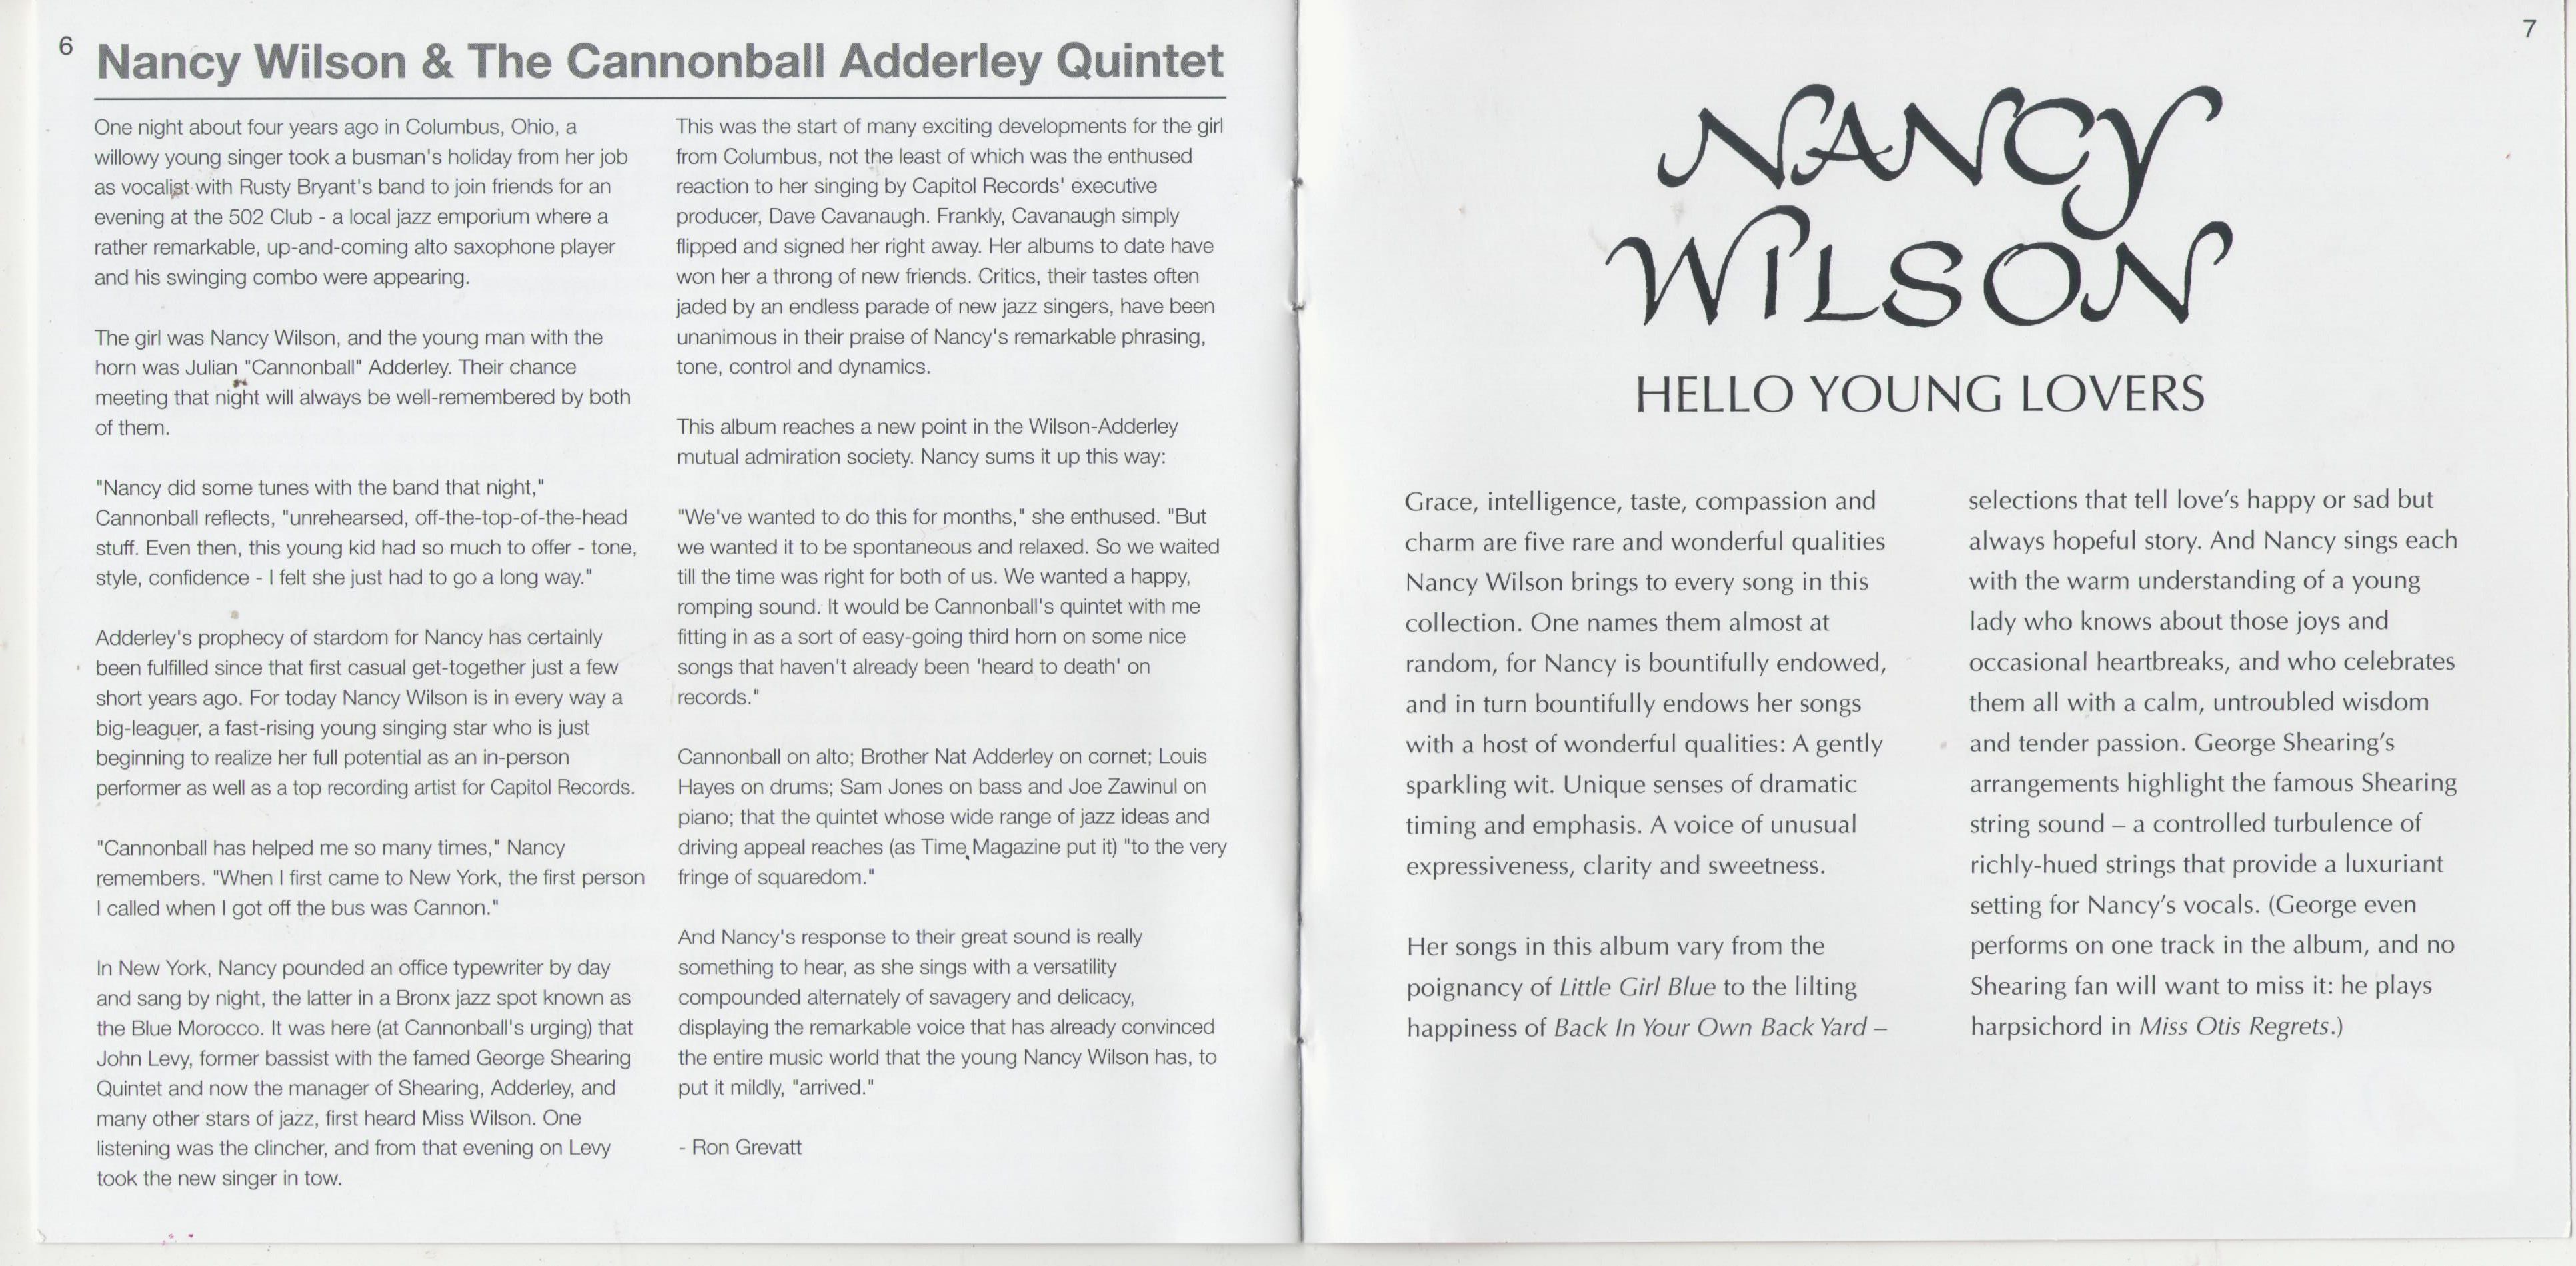 6
Nancy Wilson & The Cannonball Adderley Quintet
One night about four years ago in Columbus, Ohio, a
willowy young singer took a busman's holiday from her job
as vocalist with Rusty Bryant's band to join friends for an
evening at the 502 Club - a local jazz emporium where a
rather remarkable, up-and-coming alto saxophone player
and his swinging combo were appearing.
The girl was Nancy Wilson, and the young man with the
horn was Julian "Cannonball" Adderley. Their chance
meeting that night will always be well-remembered by both
of them.
"Nancy did some tunes with the band that night,"
Cannonball reflects, "unrehearsed, off-the-top-of-the-head
stuff. Even then, this young kid had so much to offer - tone,
style, confidence - I felt she just had to go a long way."
Adderley's prophecy of stardom for Nancy has certainly
been fulfilled since that first casual get-together just a few
short years ago. For today Nancy Wilson is in every way a
big-leaguer, a fast-rising young singing star who is just
beginning to realize her full potential as an in-person
performer as well as a top recording artist for Capitol Records.
"Cannonball has helped me so many times," Nancy
remembers. "When I first came to New York, the first person
I called when I got off the bus was Cannon."
In New York, Nancy pounded an office typewriter by day
and sang by night, the latter in a Bronx jazz spot known as
the Blue Morocco. It was here (at Cannonball's urging) that
John Levy, former bassist with the famed George Shearing
Quintet and now the manager of Shearing, Adderley, and
many other stars of jazz, first heard Miss Wilson. One
listening was the clincher, and from that evening on Levy
took the new singer in tow.
This was the start of many exciting developments for the girl
from Columbus, not the least of which was the enthused
reaction to her singing by Capitol Records' executive
producer, Dave Cavanaugh. Frankly, Cavanaugh simply
flipped and signed her right away. Her albums to date have
won her a throng of new friends. Critics, their tastes often
jaded by an endless parade of new jazz singers, have been
unanimous in their praise of Nancy's remarkable phrasing,
tone, control and dynamics.
This album reaches a new point in the Wilson-Adderley
mutual admiration society. Nancy sums it up this way:
"We've wanted to do this for months," she enthused. "But
we wanted it to be spontaneous and relaxed. So we waited
till the time was right for both of us. We wanted a happy,
romping sound. It would be Cannonball's quintet with me
fitting in as a sort of easy-going third horn on some nice
songs that haven't already been 'heard to death' on
records."
Cannonball on alto; Brother Nat Adderley on cornet; Louis
Hayes on drums; Sam Jones on bass and Joe Zawinul on
piano; that the quintet whose wide range of jazz ideas and
driving appeal reaches (as Time Magazine put it) "to the very
fringe of squaredom."
And Nancy's response to their great sound is really
something to hear, as she sings with a versatility
compounded alternately of savagery and delicacy,
displaying the remarkable voice that has already convinced
the entire music world that the young Nancy Wilson has, to
put it mildly, "arrived."
- Ron Grevatt
7
NANCY
WILSON
HELLO YOUNG LOVERS
Grace, intelligence, taste, compassion and
charm are five rare and wonderful qualities
Nancy Wilson brings to every song in this
collection. One names them almost at
random, for Nancy is bountifully endowed,
and in turn bountifully endows her songs
with a host of wonderful qualities: A gently
sparkling wit. Unique senses of dramatic
timing and emphasis. A voice of unusual
expressiveness, clarity and sweetness.
Her songs in this album vary from the
poignancy of Little Girl Blue to the lilting
happiness of Back In Your Own Back Yard –
selections that tell love's happy or sad but
always hopeful story. And Nancy sings each
with the warm understanding of a young
lady who knows about those joys and
occasional heartbreaks, and who celebrates
them all with a calm, untroubled wisdom
and tender passion. George Shearing's
arrangements highlight the famous Shearing
string sound – a controlled turbulence of
richly-hued strings that provide a luxuriant
setting for Nancy's vocals. (George even
performs on one track in the album, and no
Shearing fan will want to miss it: he plays
harpsichord in Miss Otis Regrets.)